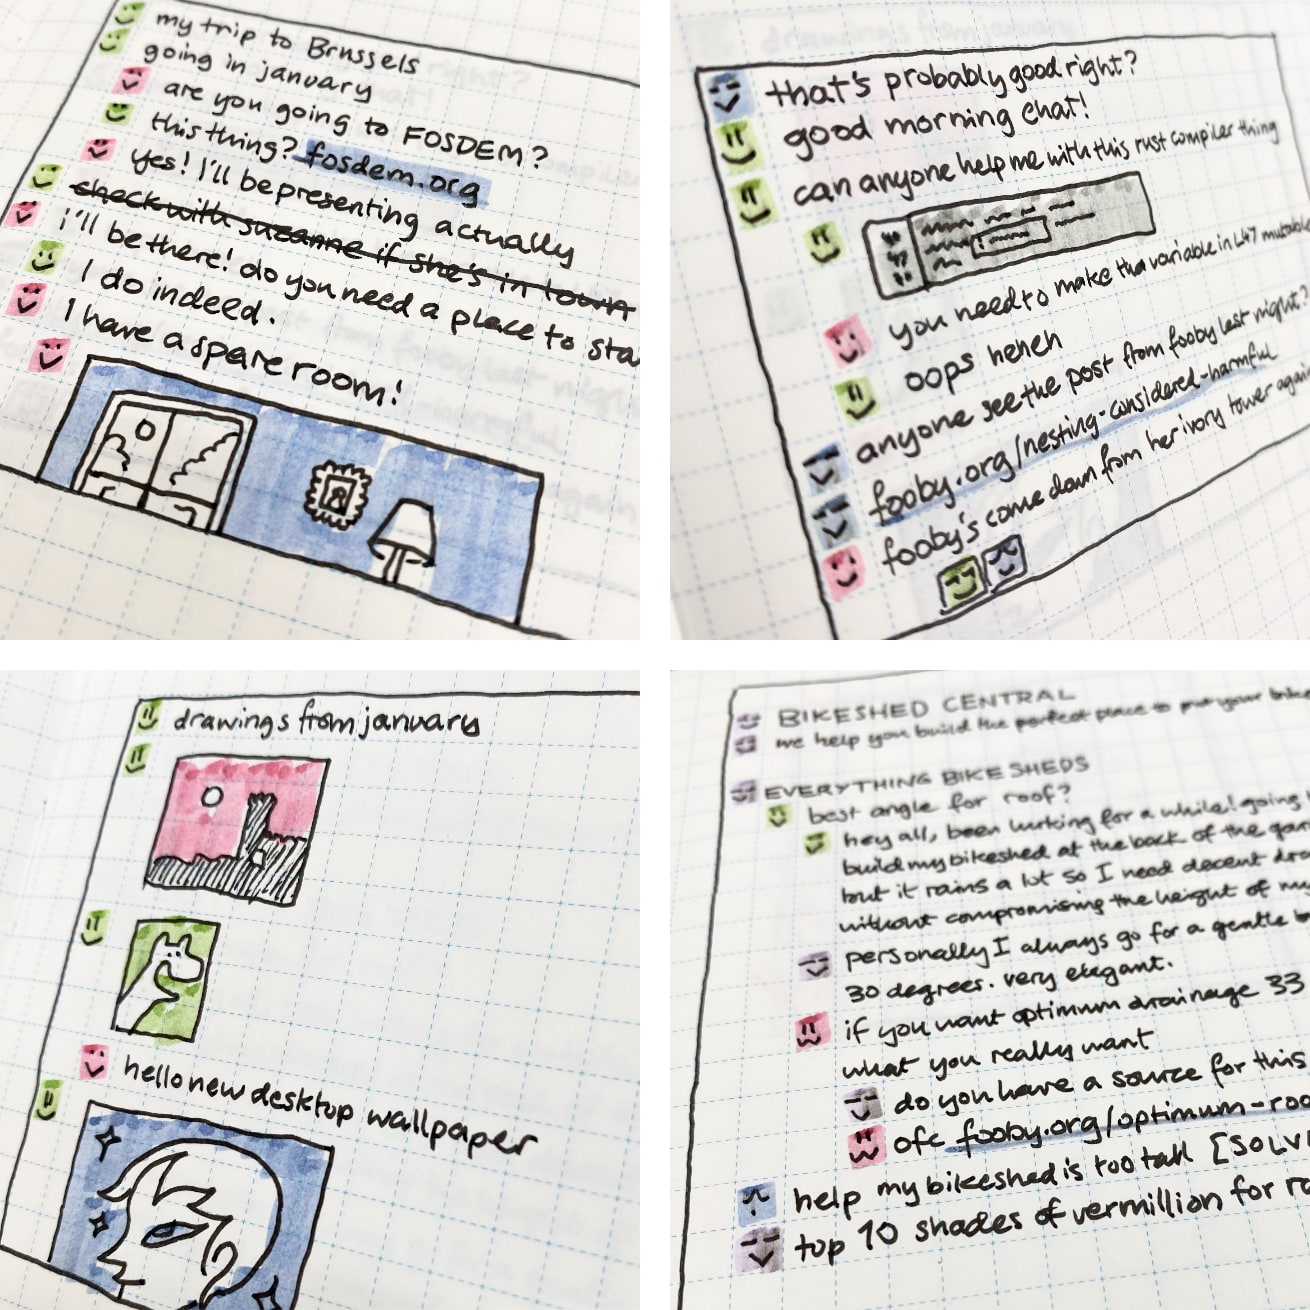 my trip to Brussels
going in january
are you going to FOSDEM?
this thing? fosdem.org
yes! I'll be presenting actually
check with suzanne if she's in town
i'll be there! do you need a place to sta
I do indeed.
I have a spare room!
that's probably good right?
good morning chat!
can anyone help me with this rust compiler thing
you need to make tha variable in L47 mutable
oops heheh
anyone see the post from fooby last night?
fooby.org/nesting-considered-harmful
fooby's come down from her ivory tower again
drawings from january
hello new desktop wallpaper
BIKESHED CENTRAL
we help you build the perfect place to put your bike
EVERYTHING BIKE SHEDS
best angle for roof?
hey all, been lurking for a while! going
build my bikeshed at the back of the gar
but it rains a lot so I need decent dra
without compromising the height of my
personally I always go for a gentle
30 degrees. very elegant.
if you want optimum drainage 33
what you really want
do you have a source for this
ofc fooby.org/optimum-roo
help my bikeshed is too tall [SOLV
top 10 shades of vermillion for ro